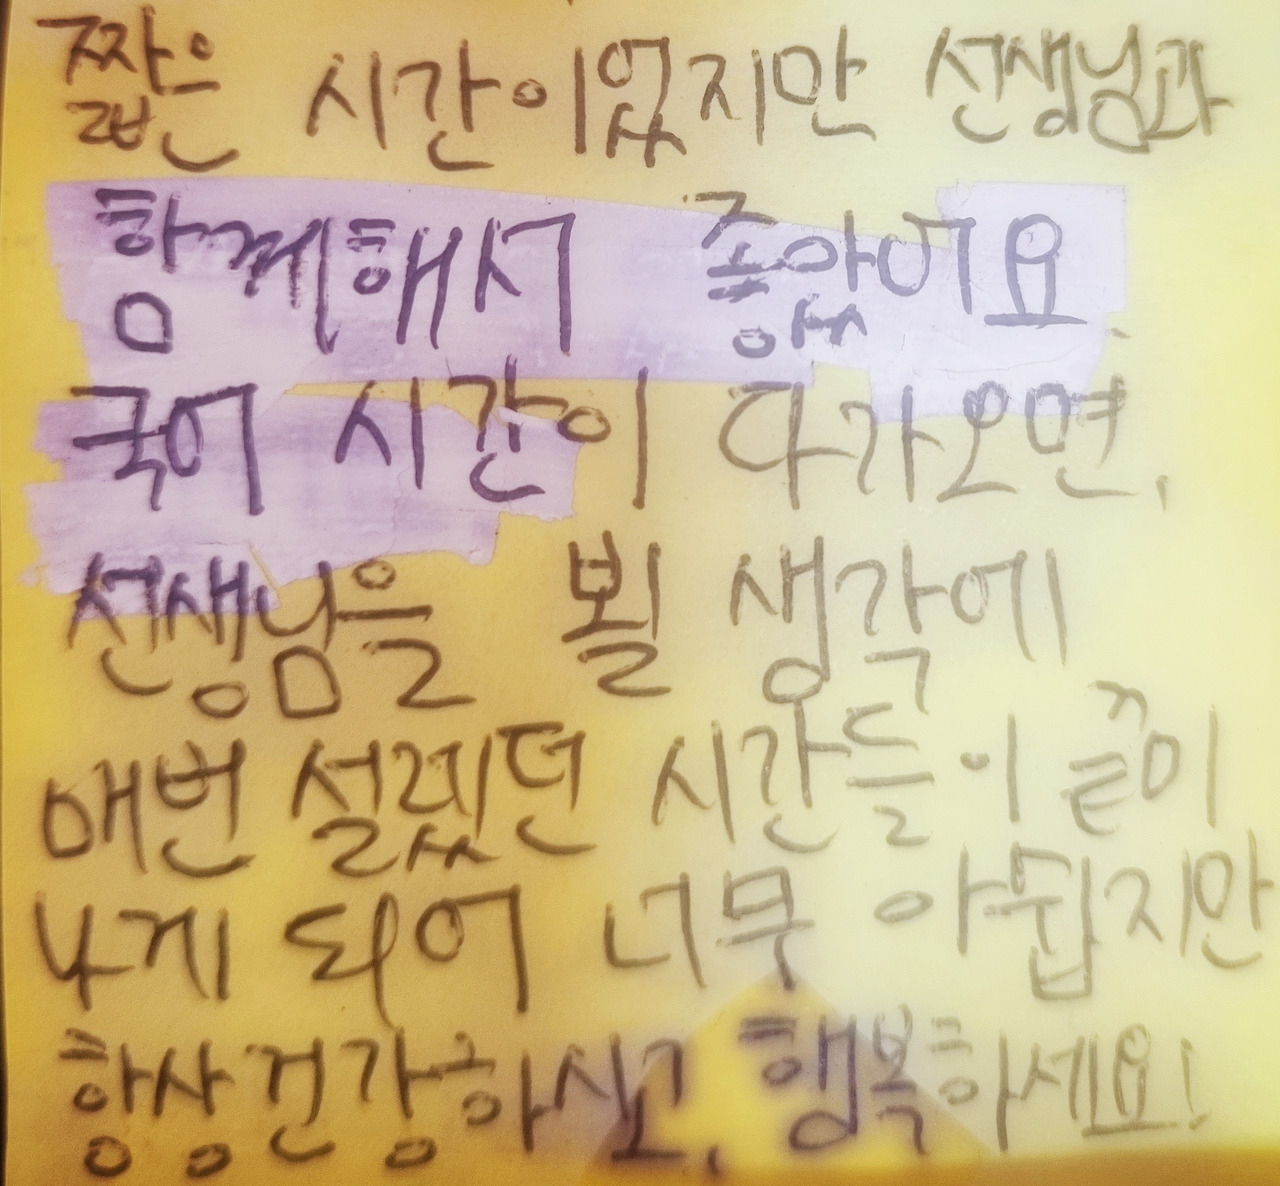 짧은 시간이었지만 선생님과
함께해서 좋았어요.
국어 시간이 다가오면,
선생님을 뵐 생각에
매번 설렜던 시간들이 끝이
나게 되어 너무 아쉽지만
항상 건강하시고, 행복하세요!